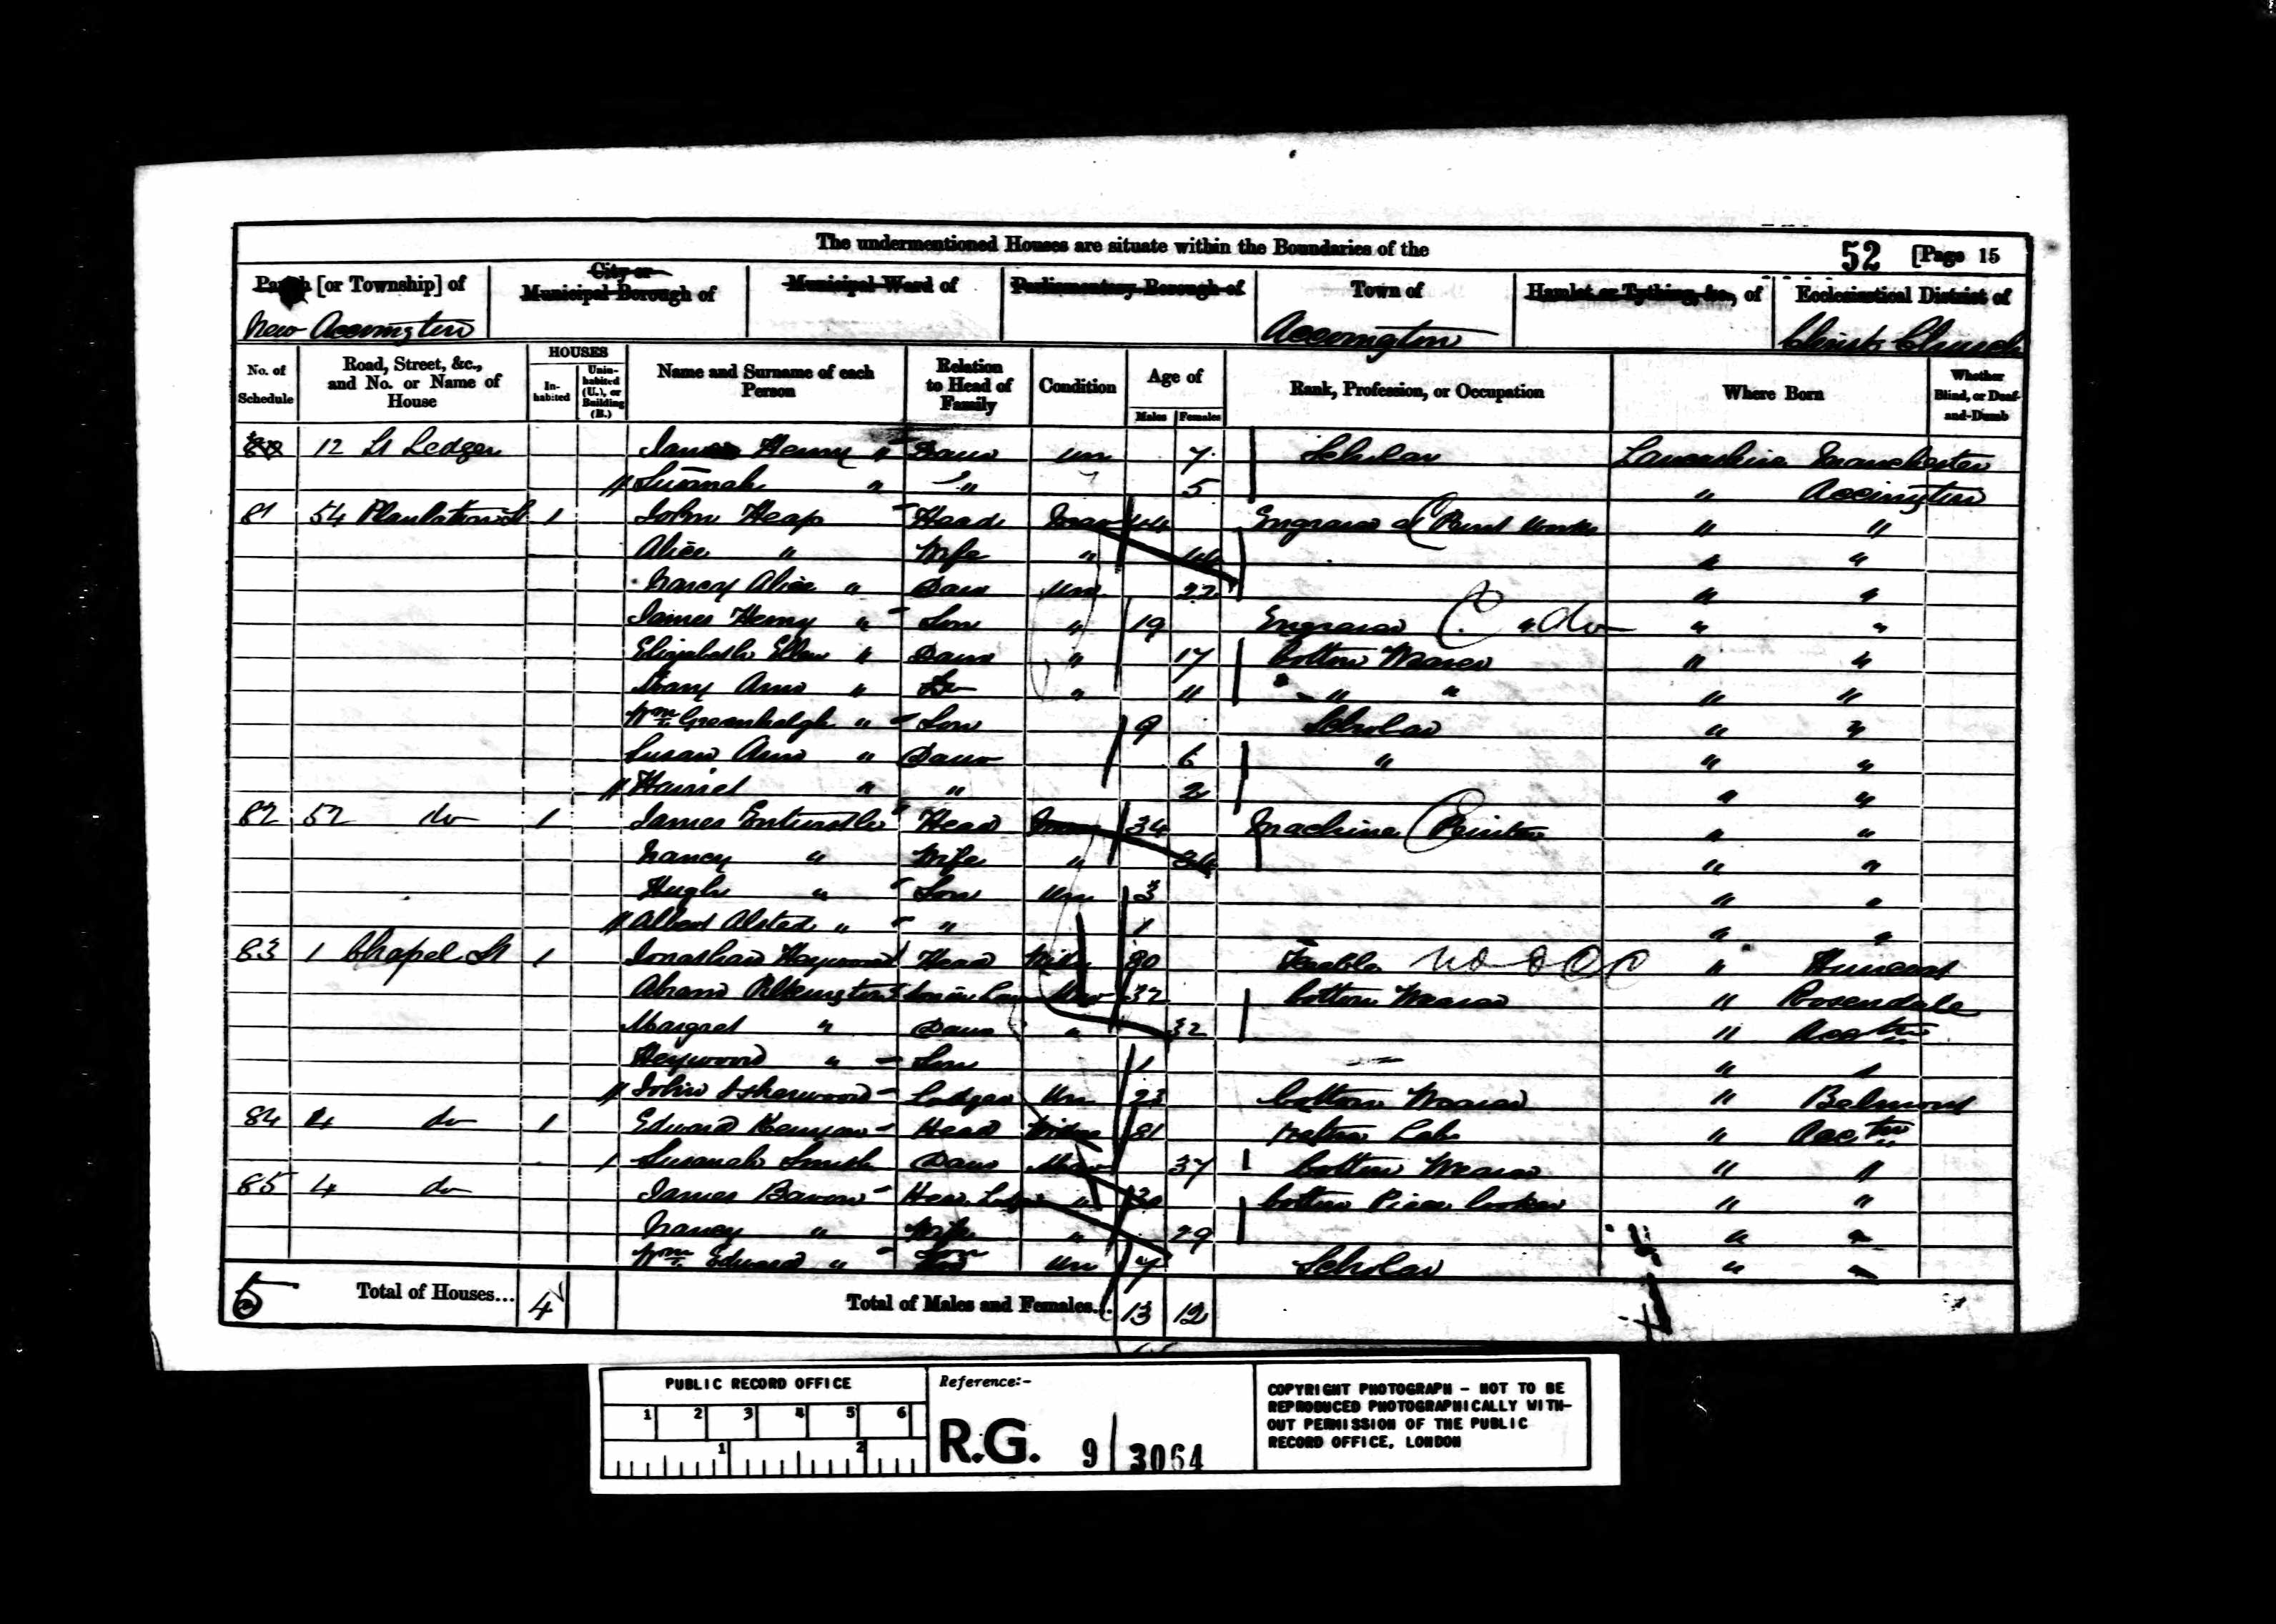 The undermentioned Houses are situate within the Boundaries of the 52 [Page 15
Parish [or Township] of City or Municipal Borough of Municipal Ward of Parliamentary Borough of Town of Hamlet or Tything, &c., of Ecclesiastical District of
New Accrington Accrington Christ Church
No. of Schedule Road, Street, &c., and No. or Name of House HOUSES In-habited Unin-habited (U.), or Building (B.) Name and Surname of each Person Relation to Head of Family Condition Age of Males Females Rank, Profession, or Occupation Where Born Whether Blind, or Deaf-and-Dumb
12 St Ledger Henry " Daur Un 7 Scholar Lancashire Manchester
Susanah " " 5 " Accrington
81 54 Plantation St 1 John Heap Head Mar 44 Engraver at Print Works " "
Alice " Wife " 44 " "
Nancy Alice " Daur Un 22 " "
James Henry " Son " 19 Engraver " do " "
Elizabeth Ellen " Daur " 17 Cotton Weaver " "
Mary Ann " Do " 11 " " " "
Wm Greenhalgh " Son 9 Scholar " "
Susan Ann " Daur 6 " " "
Harriet " " 2 " "
82 52 do 1 James Entwistle Head Mar 34 Machine Printer " "
Nancy " Wife " 34 " "
Hugh " Son Un 3 " "
Albert " " 1 " "
83 1 Chapel St 1 Jonathan Heywood Head Widr 80 " Huncoat
Abram Pilkington Son in Law Mar 32 Cotton Weaver " Rosendale
Margret " Daur " 32 " Acctn
Heywood " Son 1 " "
John Isherwood Lodger Un 23 Cotton Weaver " Belmont
84 4 do 1 Edward Kenyon Head 81 Lab " Acctn
Susanah Smith Daur Mar 37 Cotton Weaver " "
85 4 do James Head Lodger " 30 Cotton Piece Looker " "
Nancy " Wife " 29 " "
Wm Edward " Son Un 7 Scholar " "
5 Total of Houses... 4 Total of Males and Females... 13 12
PUBLIC RECORD OFFICE
1 2 3 4 5 6
1 2
Reference:-
R.G. 9/3064
COPYRIGHT PHOTOGRAPH - NOT TO BE
REPRODUCED PHOTOGRAPHICALLY WITH-
OUT PERMISSION OF THE PUBLIC
RECORD OFFICE, LONDON